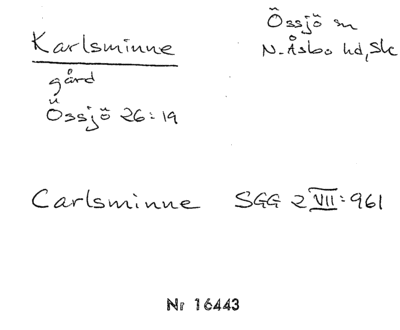 Karlsminne
gård
Össjö 26:19
Össjö sn
N. Åsbo hd, Sk
Carlsminne SGG 2 VII: 961
Nr 16443